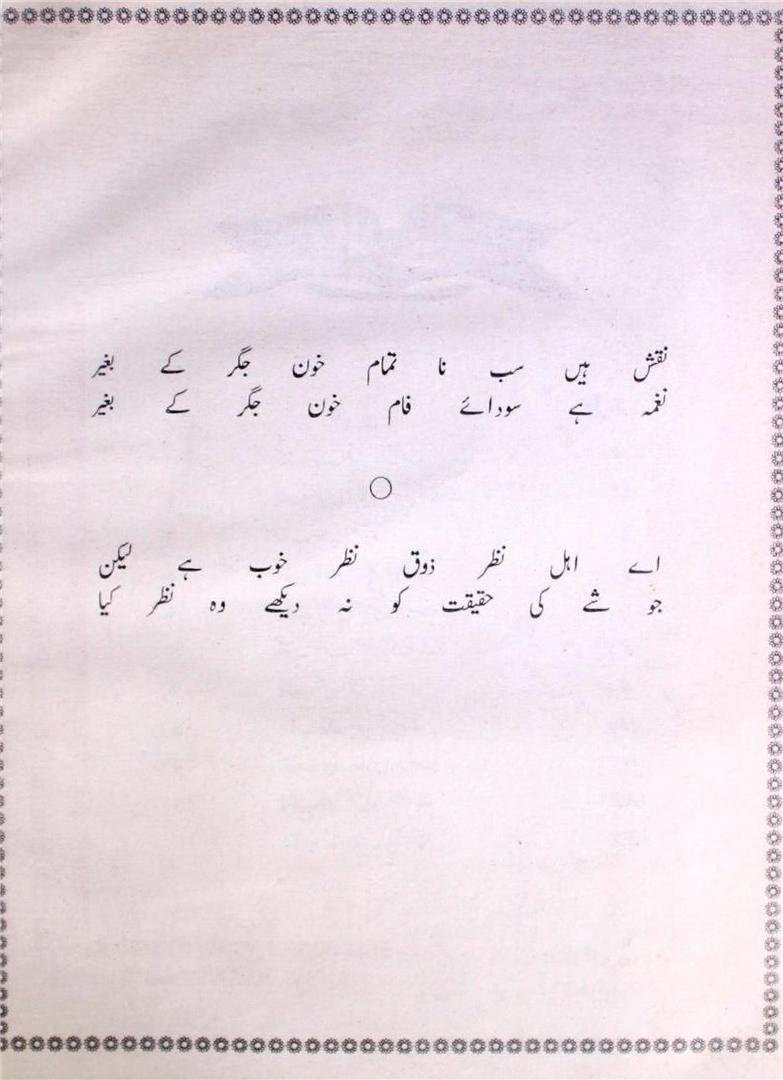 نقش ہیں سب نا تمام خون جگر کے بغیر
نغمہ ہے سودائے فام خون جگر کے بغیر
اے اہل نظر ذوق نظر خوب ہے لیکن
جو شے کی حقیقت کو نہ دیکھے وہ نظر کیا